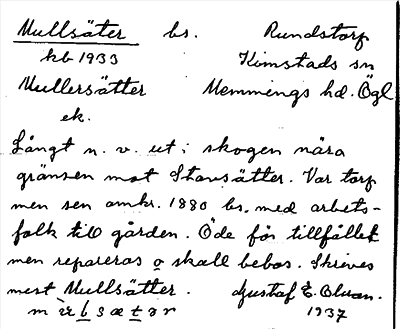 Mullsäter bs. Rundstorp
kb 1933 Kimstads sn
Mullersätter Memmings hd. Ögl
ek.
Långt n. v. ut i skogen nära
gränsen mot Stavsätter. Var torp
men sen omkr. 1880 bs. med arbets-
folk till gården. Öde för tillfället
men repareras o skall bebos. Skrives
mest Mullsätter. Gustaf E. Olsson.
1937